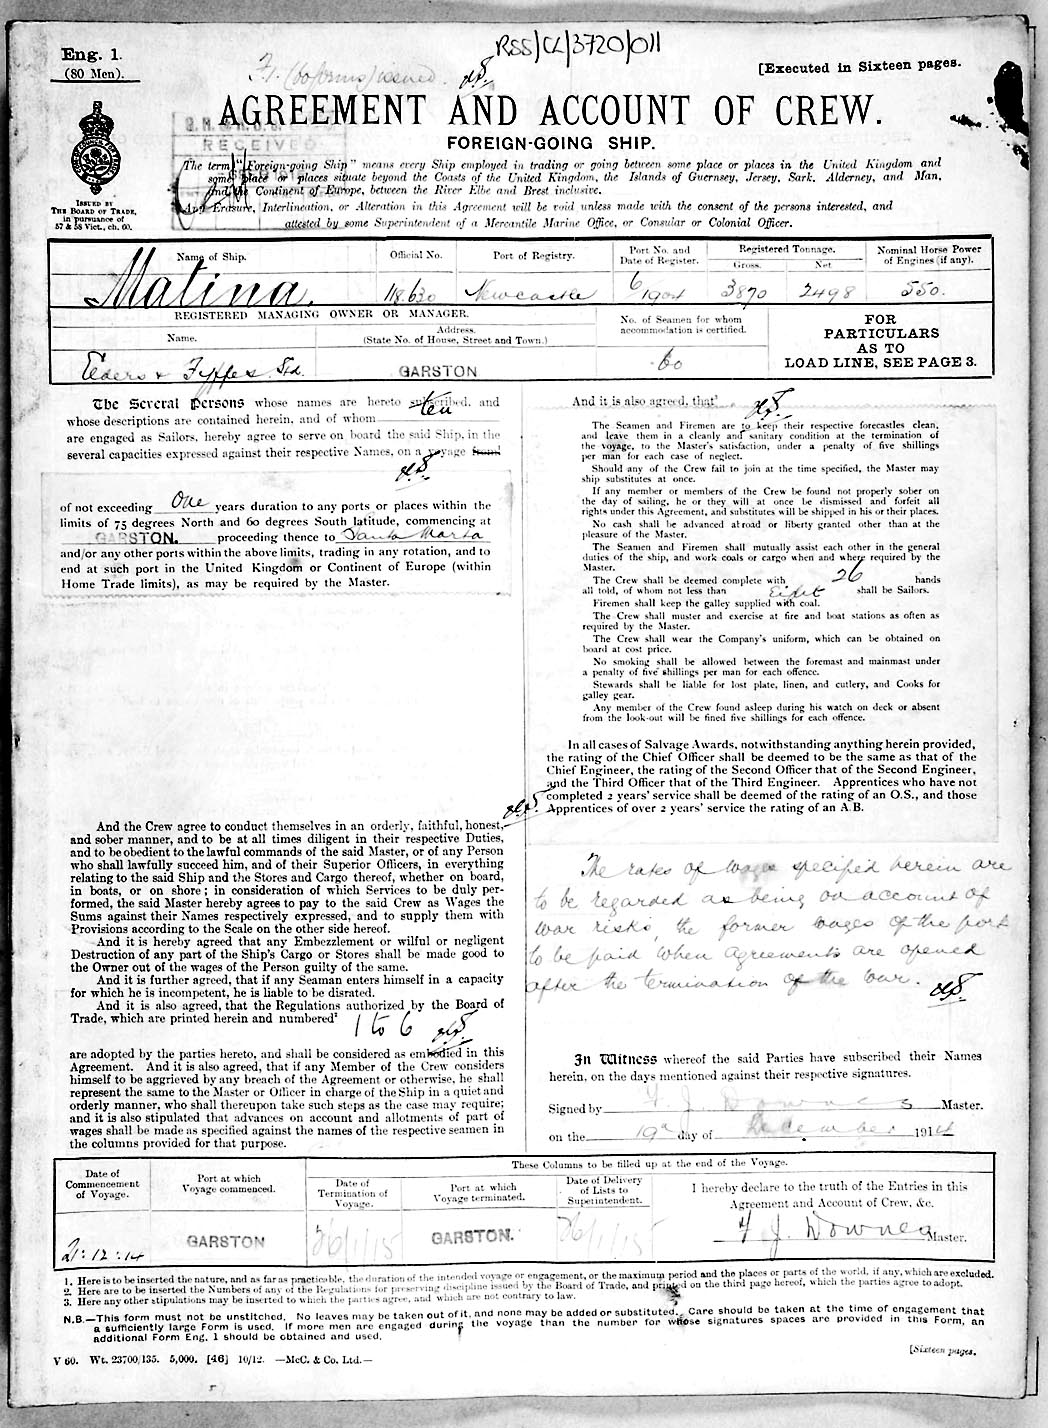 RSS/CL/3720/011
Eng. 1.
(80 Men).
[Executed in Sixteen pages.
AGREEMENT AND ACCOUNT OF CREW.
FOREIGN-GOING SHIP.
RECEIVED
The term "Foreign-going Ship" means every Ship employed in trading or going between some place or places in the United Kingdom and
some place or places situate beyond the Coasts of the United Kingdom, the Islands of Guernsey, Jersey, Sark, Alderney, and Man,
and the Continent of Europe, between the River Elbe and Brest inclusive.
Any Erasure, Interlineation, or Alteration in this Agreement will be void unless made with the consent of the persons interested, and
attested by some Superintendent of a Mercantile Marine Office, or Consular or Colonial Officer.
ISSUED BY
THE BOARD OF TRADE,
in pursuance of
57 & 58 Vict., ch. 60.
Name of Ship. Official No. Port of Registry. Port No. and Date of Register. Registered Tonnage. Gross. Net Nominal Horse Power of Engines (if any).
Matina. 118.630 Newcastle 6/1904 3870 2498 550.
REGISTERED MANAGING OWNER OR MANAGER.
Name. Address. (State No. of House, Street and Town.)
No. of Seamen for whom accommodation is certified.
FOR
PARTICULARS
AS TO
LOAD LINE, SEE PAGE 3.
Elders & Fyffes Ltd. GARSTON 60
The Several Persons whose names are hereto subscribed, and
whose descriptions are contained herein, and of whom ten
are engaged as Sailors, hereby agree to serve on board the said Ship, in the
several capacities expressed against their respective Names, on a voyage from
of not exceeding One years duration to any ports or places within the
limits of 75 degrees North and 60 degrees South latitude, commencing at
GARSTON. proceeding thence to Santa Marta
and/or any other ports within the above limits, trading in any rotation, and to
end at such port in the United Kingdom or Continent of Europe (within
Home Trade limits), as may be required by the Master.
And the Crew agree to conduct themselves in an orderly, faithful, honest,
and sober manner, and to be at all times diligent in their respective Duties,
and to be obedient to the lawful commands of the said Master, or of any Person
who shall lawfully succeed him, and of their Superior Officers, in everything
relating to the said Ship and the Stores and Cargo thereof, whether on board,
in boats, or on shore; in consideration of which Services to be duly per-
formed, the said Master hereby agrees to pay to the said Crew as Wages the
Sums against their Names respectively expressed, and to supply them with
Provisions according to the Scale on the other side hereof.
And it is hereby agreed that any Embezzlement or wilful or negligent
Destruction of any part of the Ship's Cargo or Stores shall be made good to
the Owner out of the wages of the Person guilty of the same.
And it is further agreed, that if any Seaman enters himself in a capacity
for which he is incompetent, he is liable to be disrated.
And it is also agreed, that the Regulations authorized by the Board of
Trade, which are printed herein and numbered² 1 to 6
are adopted by the parties hereto, and shall be considered as embodied in this
Agreement. And it is also agreed, that if any Member of the Crew considers
himself to be aggrieved by any breach of the Agreement or otherwise, he shall
represent the same to the Master or Officer in charge of the Ship in a quiet and
orderly manner, who shall thereupon take such steps as the case may require;
and it is also stipulated that advances on account and allotments of part of
wages shall be made as specified against the names of the respective seamen in
the columns provided for that purpose.
And it is also agreed, that³
The Seamen and Firemen are to keep their respective forecastles clean,
and leave them in a cleanly and sanitary condition at the termination of
the voyage, to the Master's satisfaction, under a penalty of five shillings
per man for each case of neglect.
Should any of the Crew fail to join at the time specified, the Master may
ship substitutes at once.
If any member or members of the Crew be found not properly sober on
the day of sailing, he or they will at once be dismissed and forfeit all
rights under this Agreement, and substitutes will be shipped in his or their places.
No cash shall be advanced abroad or liberty granted other than at the
pleasure of the Master.
The Seamen and Firemen shall mutually assist each other in the general
duties of the ship, and work coals or cargo when and where required by the
Master.
The Crew shall be deemed complete with 26 hands
all told, of whom not less than Eight shall be Sailors.
Firemen shall keep the galley supplied with coal.
The Crew shall muster and exercise at fire and boat stations as often as
required by the Master.
The Crew shall wear the Company's uniform, which can be obtained on
board at cost price.
No smoking shall be allowed between the foremast and mainmast under
a penalty of five shillings per man for each offence.
Stewards shall be liable for lost plate, linen, and cutlery, and Cooks for
galley gear.
Any member of the Crew found asleep during his watch on deck or absent
from the look-out will be fined five shillings for each offence.
In all cases of Salvage Awards, notwithstanding anything herein provided,
the rating of the Chief Officer shall be deemed to be the same as that of the
Chief Engineer, the rating of the Second Officer that of the Second Engineer,
and the Third Officer that of the Third Engineer. Apprentices who have not
completed 2 years' service shall be deemed of the rating of an O.S., and those
Apprentices of over 2 years' service the rating of an A.B.
The rates of wages specified herein are
to be regarded as being on account of
war risks, the former wages of the port
to be paid when agreements are opened
after the termination of the war.
In Witness whereof the said Parties have subscribed their Names
herein, on the days mentioned against their respective signatures.
Signed by F. J. Downes Master.
on the 19th day of December 1914
These Columns to be filled up at the end of the Voyage.
Date of Commencement of Voyage. Port at which Voyage commenced. Date of Termination of Voyage. Port at which Voyage terminated. Date of Delivery of Lists to Superintendent.
I hereby declare to the truth of the Entries in this
Agreement and Account of Crew, &c.
21:12:14 GARSTON 26/1/15 GARSTON. 26/1/15 F. J. Downes Master.
1. Here is to be inserted the nature, and as far as practicable, the duration of the intended voyage or engagement, or the maximum period and the places or parts of the world, if any, which are excluded.
2. Here are to be inserted the Numbers of any of the Regulations for preserving discipline issued by the Board of Trade, and printed on the third page hereof, which the parties agree to adopt.
3. Here any other stipulations may be inserted to which the parties agree, and which are not contrary to law.
N.B.—This form must not be unstitched. No leaves may be taken out of it, and none may be added or substituted. Care should be taken at the time of engagement that
a sufficiently large Form is used. If more men are engaged during the voyage than the number for whose signatures spaces are provided in this Form, an
additional Form Eng. 1 should be obtained and used.
V 60. Wt. 23700/135. 5,000. [46] 10/12. —McC. & Co. Ltd.—
[Sixteen pages.